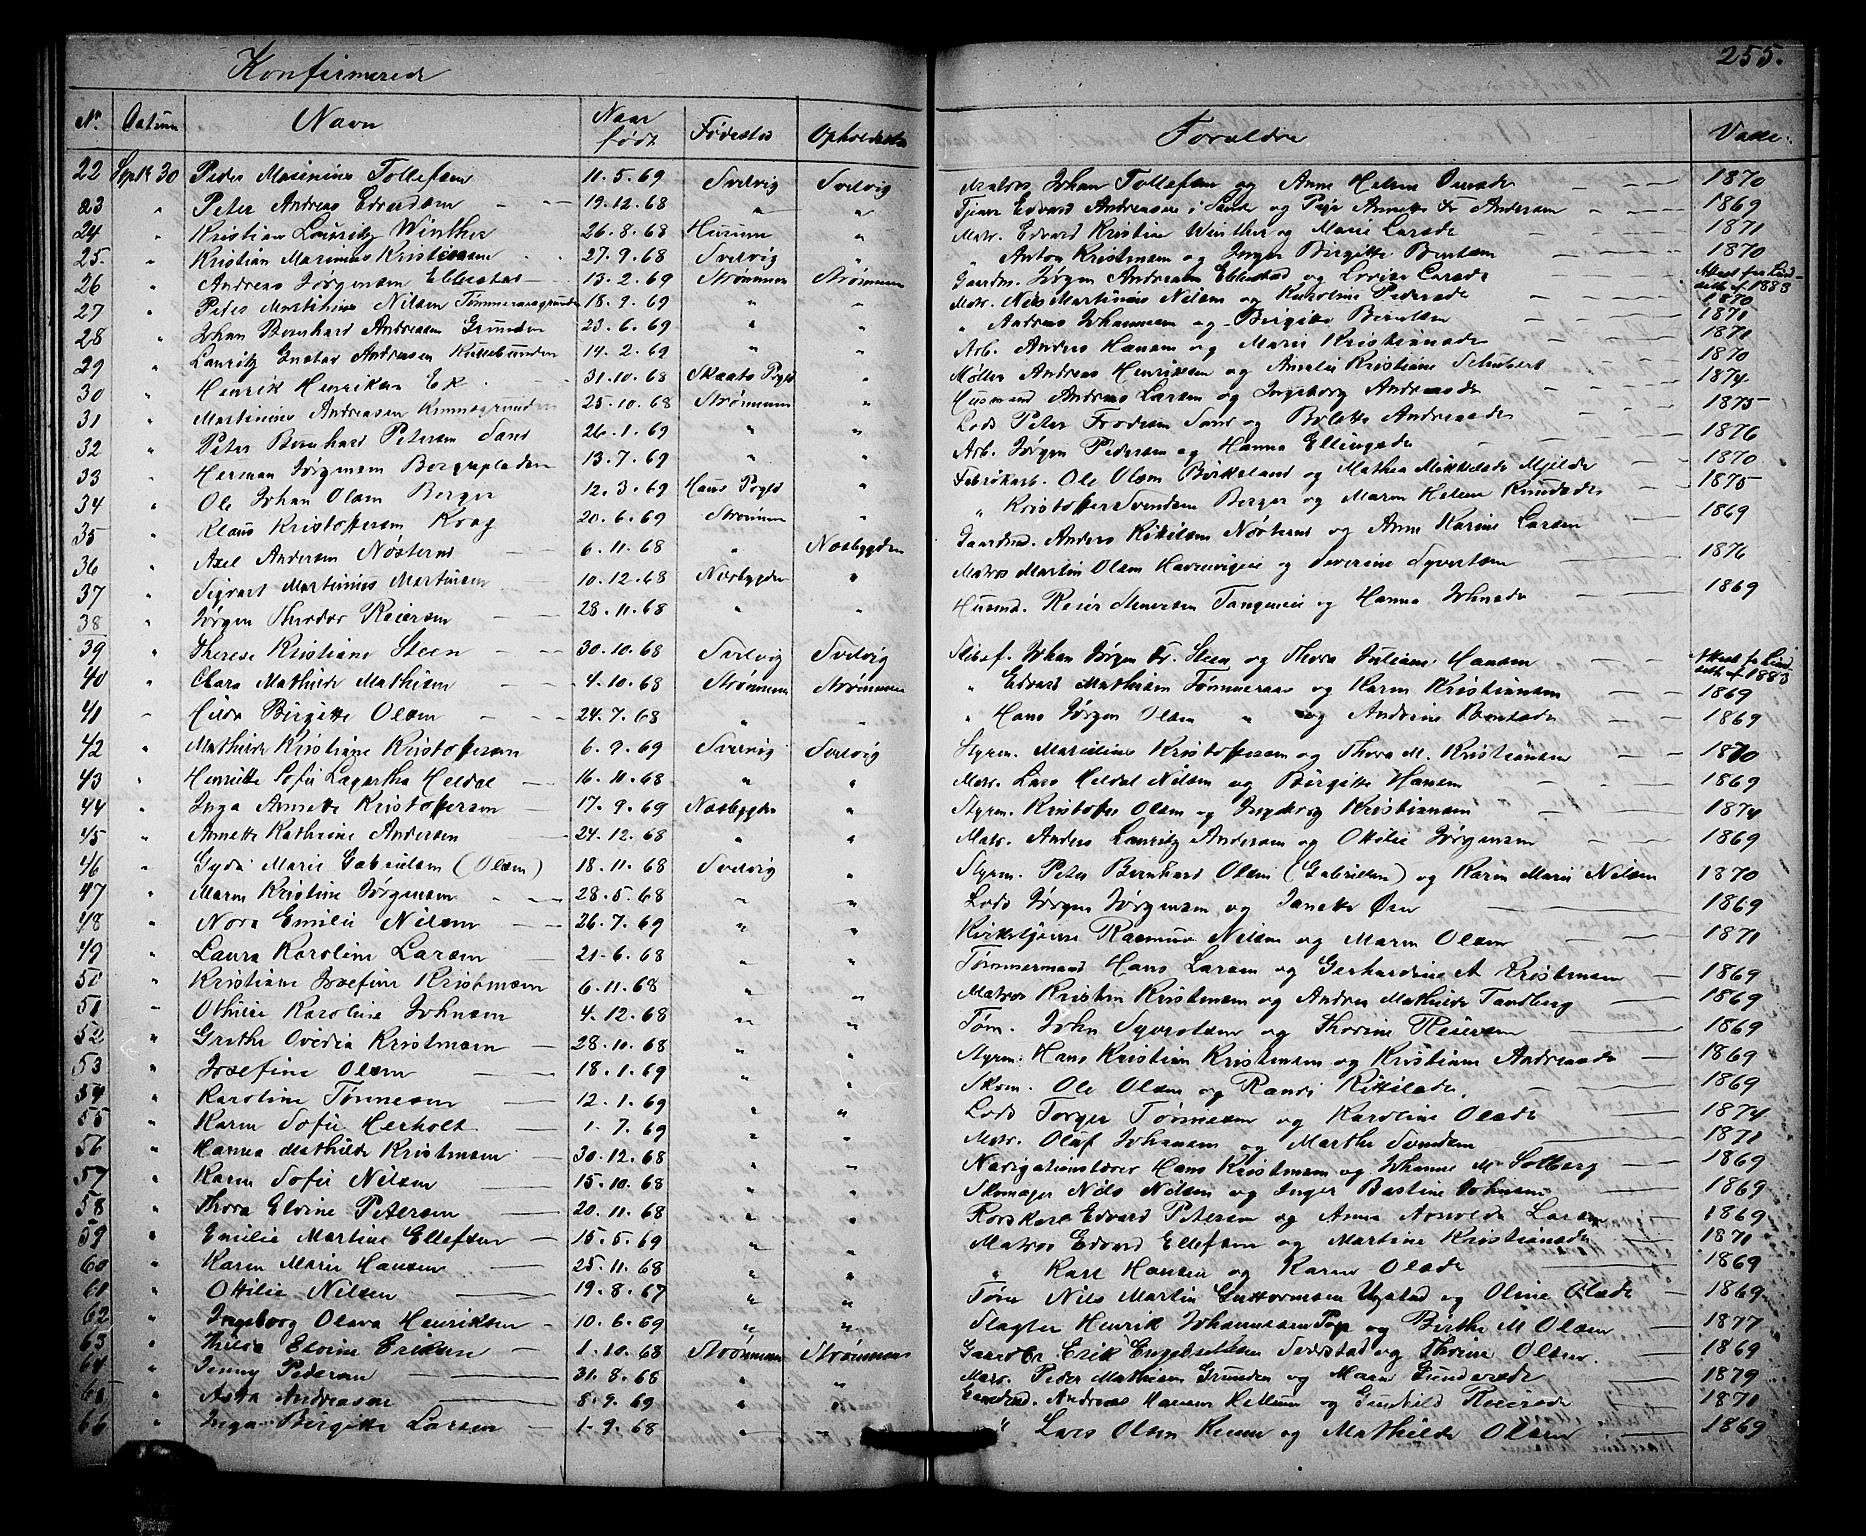 Konfirmerede
255.
Nr. Datum Navn Naar født Fødested Opholdssted Forældre Vacc.
22 Septbr 30 Peder Masinius Tollefsen 11.5.69 Svelvig Svelvig Matros Johan Tollefsen og Anne Helene 1870
23 " Peter Andreas Edvardsen 19.12.68 " " Tjener Edvard Andreassen i Sande og Pige Annette Andersen 1869
24 " Kristian Lauritz Winther 26.8.68 Hurum " Matr. Edvard Kristian Winther og Marie Larsdr 1871
25 " Kristian Marinius Kristiansen 27.9.68 Svelvig " " Anton Kristensen og Inger Birgitte Berntsen 1870
26 " Andreas Jørgensen Ellestad 13.2.69 Strømmen Strømmen Gaardm. Jørgen Andreassen Ellestad og Lovise Larsdr Attest fra 1883
27 " Peder Martinius Nilsen Tømmeraasgrunden 18.9.69 " " Matr. Nils Martinius Nilsen og Karoline Pedersdr 1870
28 " Johan Bernhard Andreasen Grunden 23.6.69 " " " Andreas Johannesen og Birgitte Berntsen 1871
29 " Lauritz Gustav Andersen Kullebunden 14.2.69 " " Arb. Anders Hansen og Maren Kristiansdr 1871
30 " Henrik Henriksen Ek 31.10.68 Skaats Prgld " Møller Andreas Henriksen og Amalie Kristiane Schubert 1870
31 " Martinius Andreasen Kinnsgrunden 25.10.68 Strømmen " Husmand Andreas Larsen og Ingeborg Andreasdr 1874
32 " Peter Bernhard Petersen Sand 26.1.69 " " Lods Peter Frodesen Sand og Bolette Andreasdr 1875
33 " Herman Jørgensen Borgerpladsen 13.7.69 " " Arb. Jørgen Pedersen og Hanna Ellingsdr 1876
34 " Ole Johan Olsen Berger 12.3.69 Haus Prgld " Fabrikarb. Ole Olsen Birkeland og Mathea Mikkelsdr Mjelde 1870
35 " Klaus Kristoffersen Krag 20.6.69 Strømmen " " Kristoffer Svendsen Berger og Maren Helene Knudsdr 1875
36 " Axel Andersen Nøsterud 6.11.68 " Næsbygden Gaardmd. Anders Kittilsen Nøsterud og Anne Karine Larsen 1869
37 " Sigvart Martinius Martinsen 10.12.68 Næsbygden " Matros Martin Olsen og Severine Syvertsen 1876
38 " Jørgen Theodor Reiersen 28.11.68 " " Husmd. Reier Tangerei og Hanna Johnsdr 1869
39 " Therese Kristiane Steen 30.10.68 Svelvig Svelvig Skibsf. Johan Jørgen Fr. Steen og Thora Juliane Hansen Attest fra 1883
40 " Clara Mathilde Mathisen 4.10.68 Strømmen Strømmen " Edvard Mathisen Tømmeraas og Karen Kristiansen 1869
41 " Hilda Birgitte Olsen 24.7.68 " " " Hans Jørgen Olsen " og Andrine Berntsdr 1869
42 " Mathilde Kristiane Kristoffersen 6.9.69 Svelvig Svelvig Styrm. Marielius Kristoffersen og Thora M. Kristiansen 1870
43 " Henriette Sofie Lagertha Heldal 16.11.68 " " Matr. Lars Heldal Nilsen og Birgitte Hansen 1869
44 " Inga Annette Kristoffersen 17.9.69 Næsbygden " Styrm. Kristoffer Olsen og Ingeborg Kristiansen 1874
45 " Annette Kathrine Andersen 24.12.68 " " Matr. Anders Lauritz Andersen og Ottilie Jørgensen 1869
46 " Gyda Marie Gabrielsen (Olsen) 18.11.68 Svelvig " Styrm. Peter Bernhard Olsen (Gabrielsen) og Karen Marie Nilsen 1870
47 " Maren Kristine Jørgensen 28.5.68 " " Lods Jørgen Jørgensen og Janette Øen 1869
48 " Nora Emilie Nilsen 26.7.69 " " Kirketjener Rasmus Nilsen og Maren Olsen 1871
49 " Laura Karoline Larsen 21.6.68 " " Tømmermand Hans Larsen og Gerhardine A Kristensen 1869
50 " Kristiane Josefine Kristensen 6.11.68 " " Matros Kristen Kristensen og Andrea Mathilde Tandberg 1869
51 " Othilie Karoline Johnsen 4.12.68 " " Tøm. John Syvertsen og Thorine Reiersen 1869
52 " Grethe Ovidia Kristensen 28.10.68 " " Styrm. Hans Kristian Kristensen og Kristiane Andreasdr 1869
53 " Josefine Olsen 18.1.69 " " Skom. Ole Olsen og Randi Kittilsdr 1869
54 " Karoline Tønnesen 12.1.69 " " Lods Torger Tønnesen og Karoline Olsdr 1874
55 " Karen Sofie Herholt 1.7.69 " " Matr. Oluf Johansen og Marthe Svendsen 1871
56 " Hanna Mathilde Kristensen 30.12.68 " " Navigationslærer Hans Kristensen og Johanne M. Solberg 1869
57 " Karen Sofie Nilsen 15.10.68 " " Skomager Nils Nilsen og Inger Bastine Johnsen 1869
58 " Thora Elvine Petersen 20.11.68 " " Rorskarl Edvard Petersen og Anna Arnolda Larsen 1869
59 " Emilie Martine Ellefsen 15.5.69 " " Matros Edvard Ellefsen og Martine Kristiansdr 1871
60 " Karen Marie Hansen 25.11.68 " " " Karl Hansen og Karen Olsdr 1869
61 " Ottilie Nilsen 19.8.67 " " Tøm Nils Martin Guttormsen Ugstad og Oline Olsdr 1869
62 " Ingeborg Olava Henriksen 10.6.69 " " Slagter Henrik Johannessen Pop og Berthe M Olsen 1877
63 " Hilda Elvine Eriksen 1.10.68 Strømmen Strømmen Gaardbr Erik Engebretsen og Thorine Olsen 1869
64 " Jenny Pedersen 31.8.68 " " Matr. Peder Mathisen Grunden og Maren Gundersdr 1879
65 " Asta Andreasen 8.9.69 " " Gaardmd. Andreas Hansen Hellum og Gunhild Reiersdr 1871
66 " Inga Birgitte Larsen 1.9.68 " " " Lars Olsen Kinn og Mathilde Olsen 1869